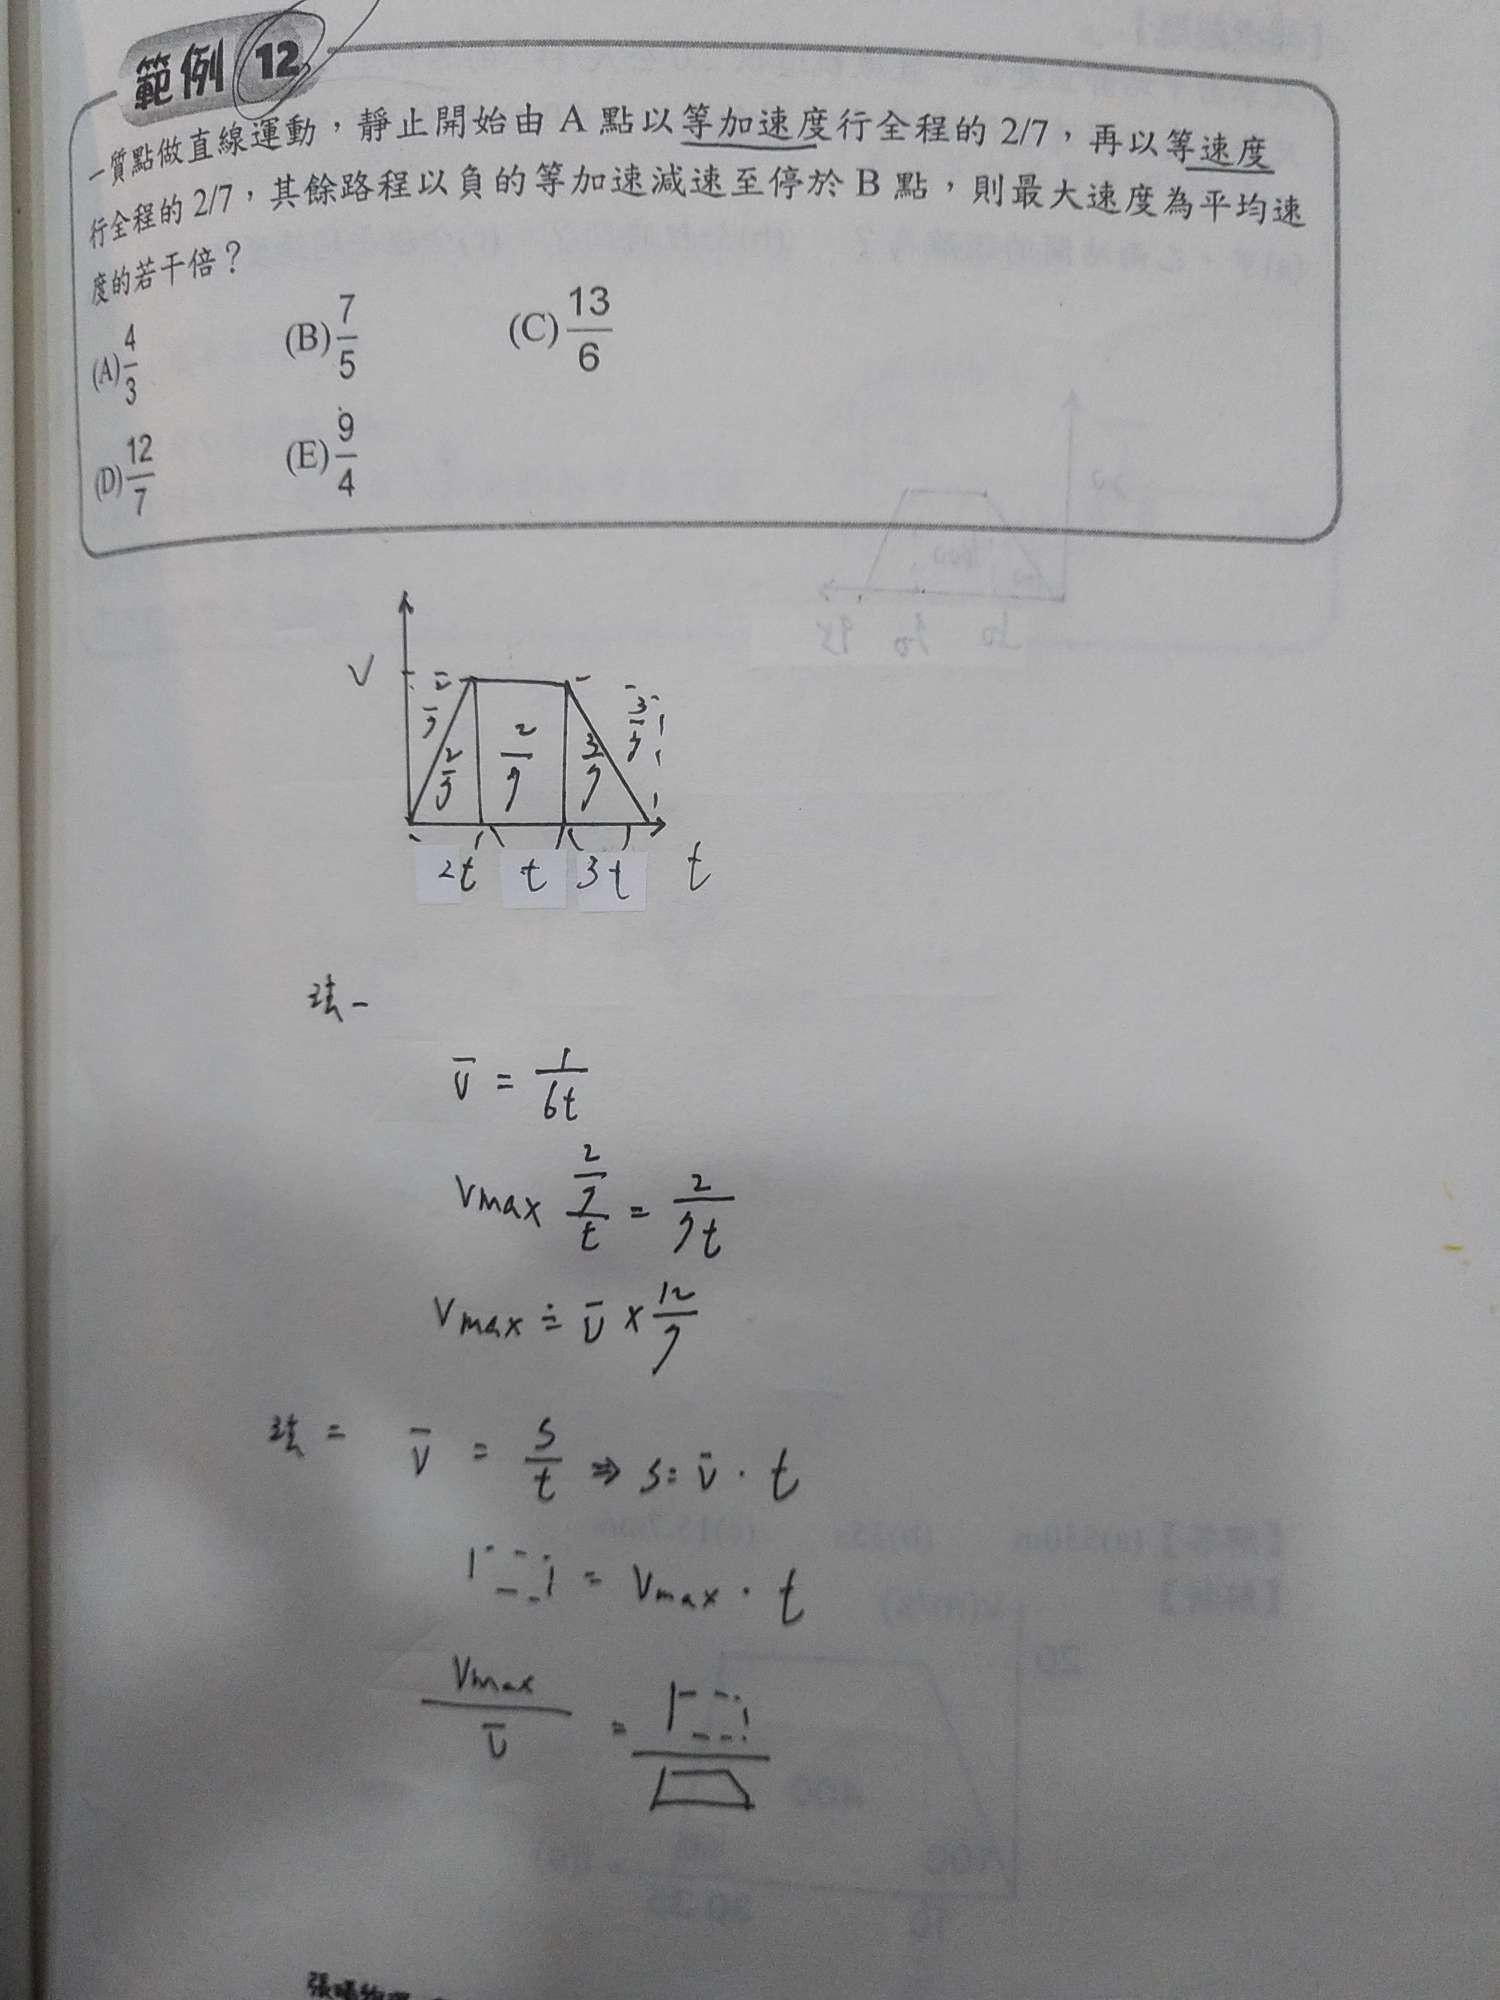 範例 12
一質點做直線運動，靜止開始由 A 點以等加速度行全程的 2/7，再以等速度
行全程的 2/7，其餘路程以負的等加速減速至停於 B 點，則最大速度為平均速
度的若干倍？
(A) 4/3 (B) 7/5 (C) 13/6
(D) 12/7 (E) 9/4
V
2/7 2/7 2/7 3/7 3/7
2t t 3t t
法一
v̄ = 1/6t
Vmax 2/7/t = 2/7t
Vmax ≐ v̄ × 12/7
法二 v̄ = s/t ⇒ s = v̄ · t
= Vmax · t
Vmax/v̄ =